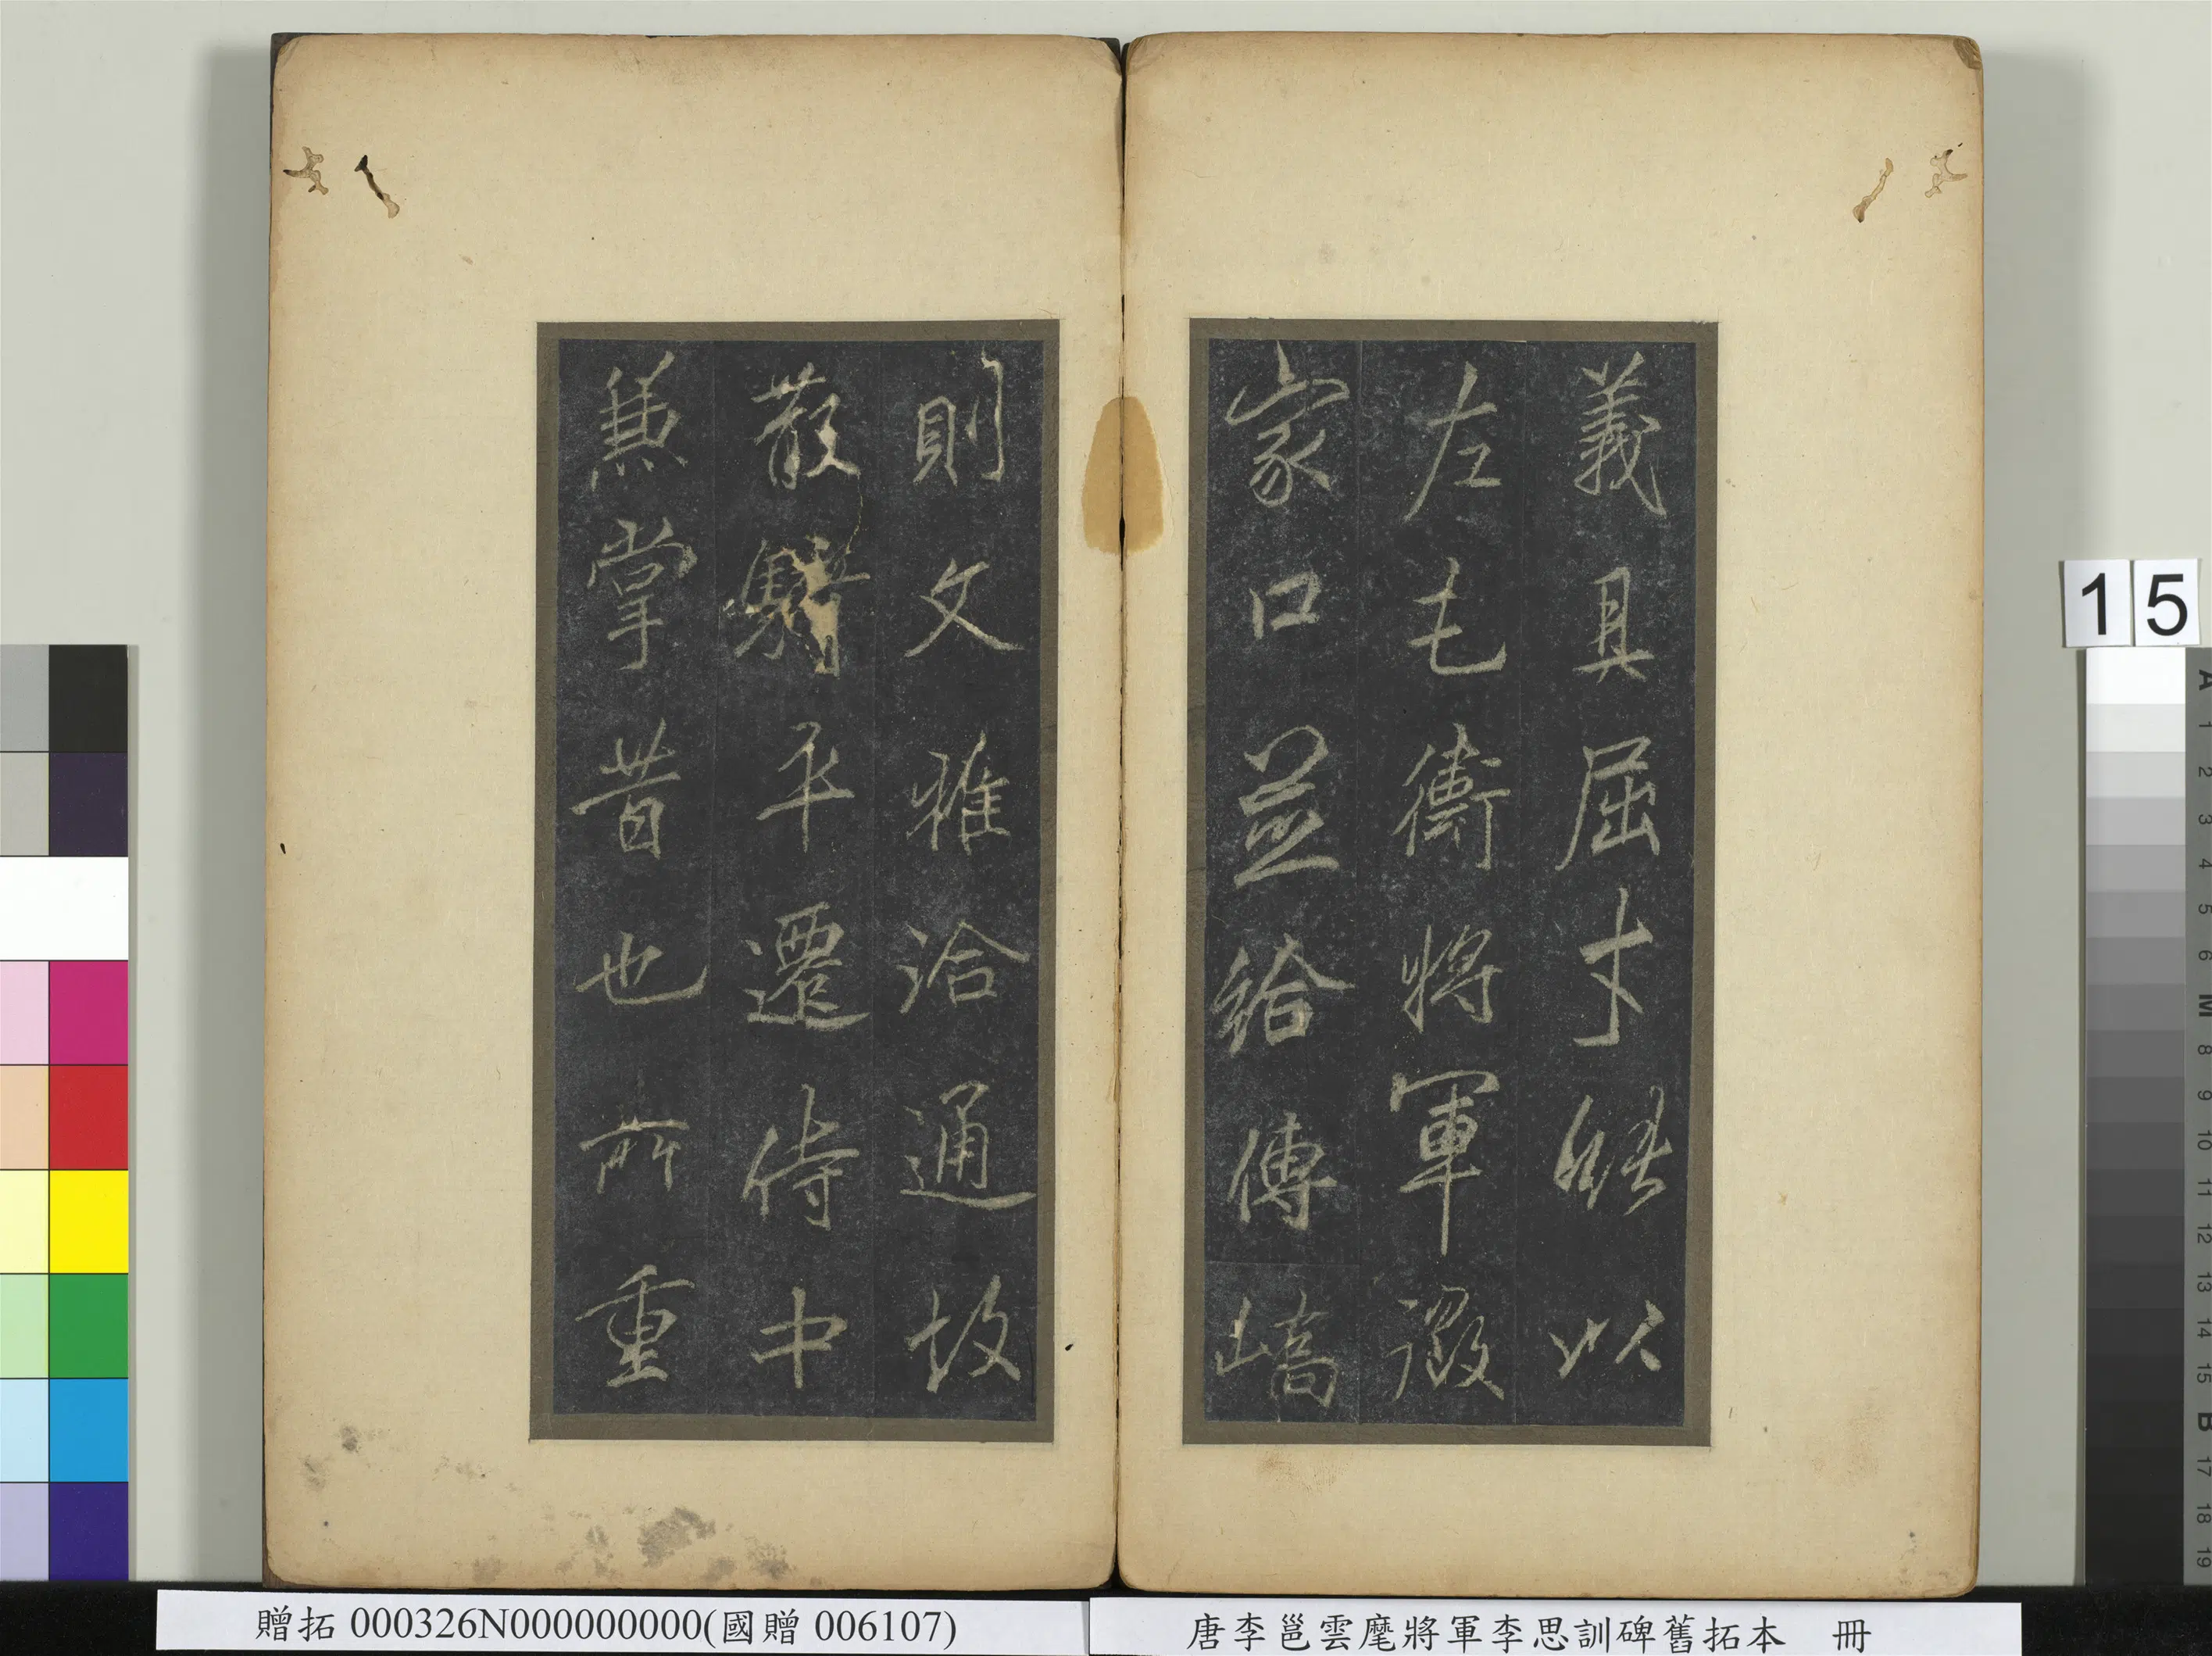 義具屈才能以
左屯衛將軍徵
家口並給傳嶠
則文雅洽通故
散騎平遷侍中
兼掌昔也所重
15
A 1 2 3 4 5 6 M 8 9 10 11 12 13 14 15 B 17 18 19
贈拓 000326N000000000(國贈 006107)
唐李邕雲麾將軍李思訓碑舊拓本 冊